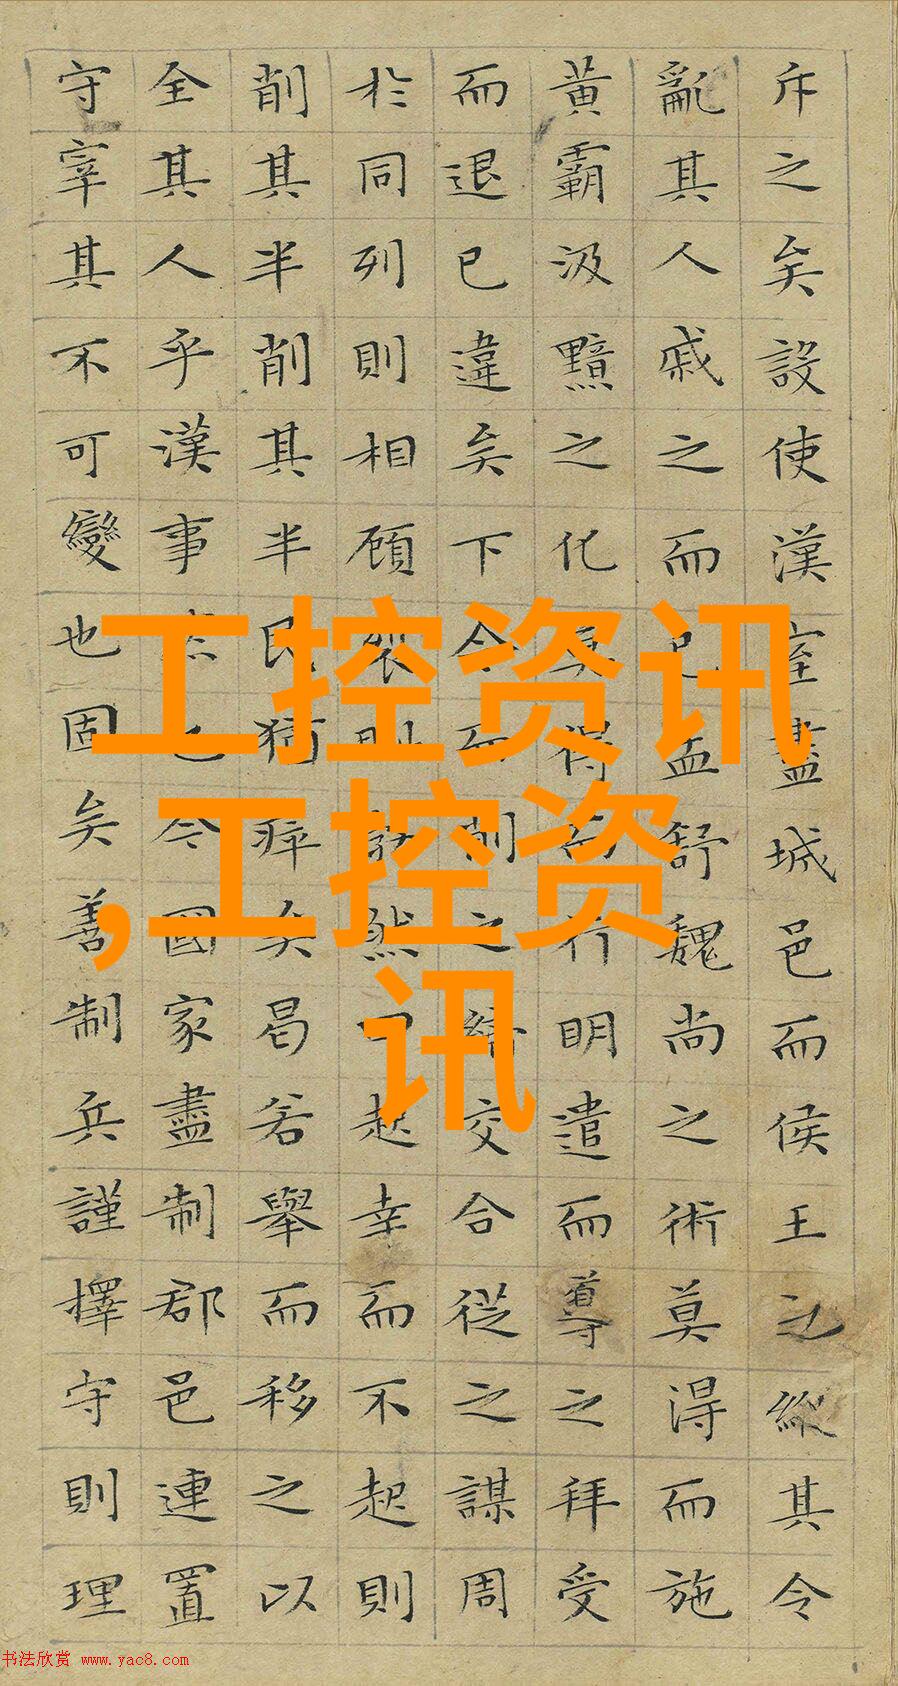 斥之矣設使漢室盡城邑而侯王之縱其令
亂其人戚之而已孟舒魏尚之術莫得而施
黃霸汲黯之化莫得而行明遣而導之拜受
而退已違矣下令而削之締交合從之謀周
於同列則相顧裂然而起幸而不起則
削其半削其半民猶瘁矣曷若舉而移之以
全其人乎漢事然也今國家盡制郡邑連置
守宰其不可變也固矣善制兵謹擇守則理
工控资讯
,工控资
讯
书法欣赏 www.yac8.com